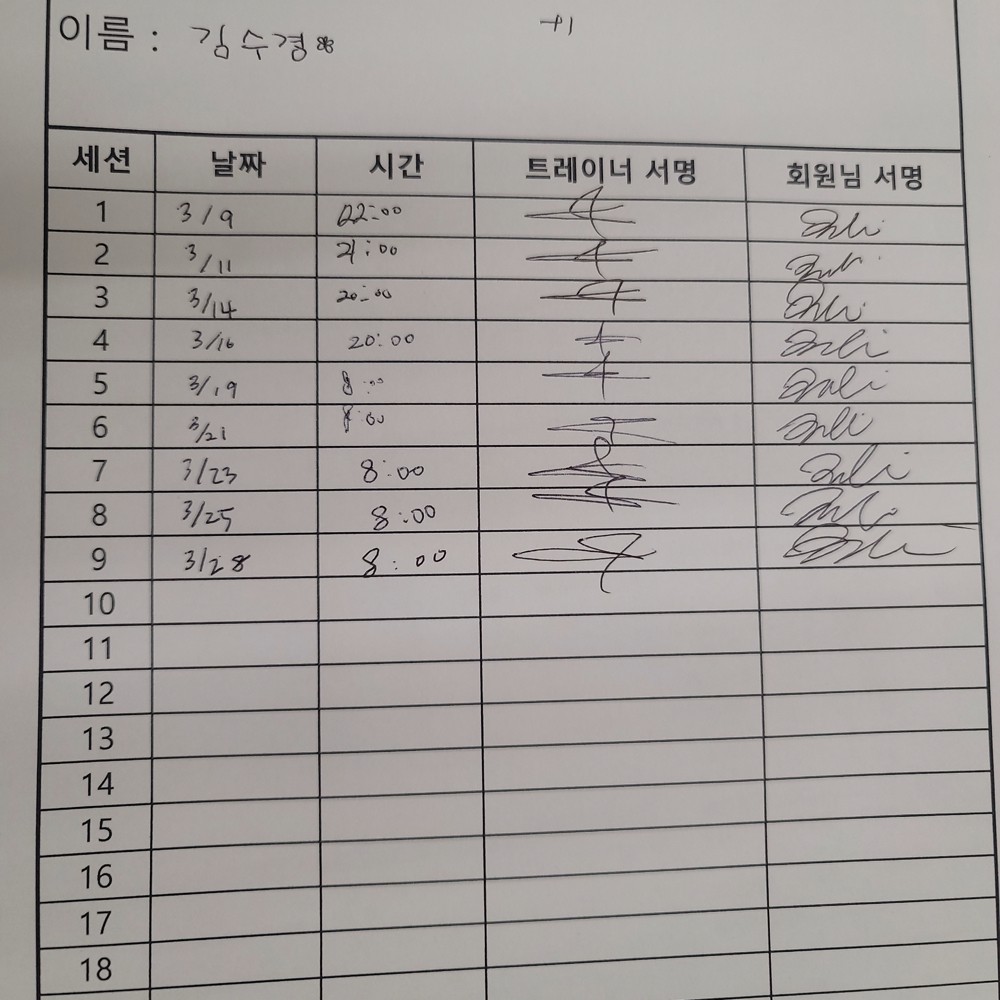 이름 : 김수경
+1
세션 날짜 시간 트레이너 서명 회원님 서명
1 3/9 22:00
2 3/11 21:00
3 3/14 20:00
4 3/16 20:00
5 3/19 8:00
6 3/21 8:00
7 3/23 8:00
8 3/25 8:00
9 3/28 8:00
10
11
12
13
14
15
16
17
18